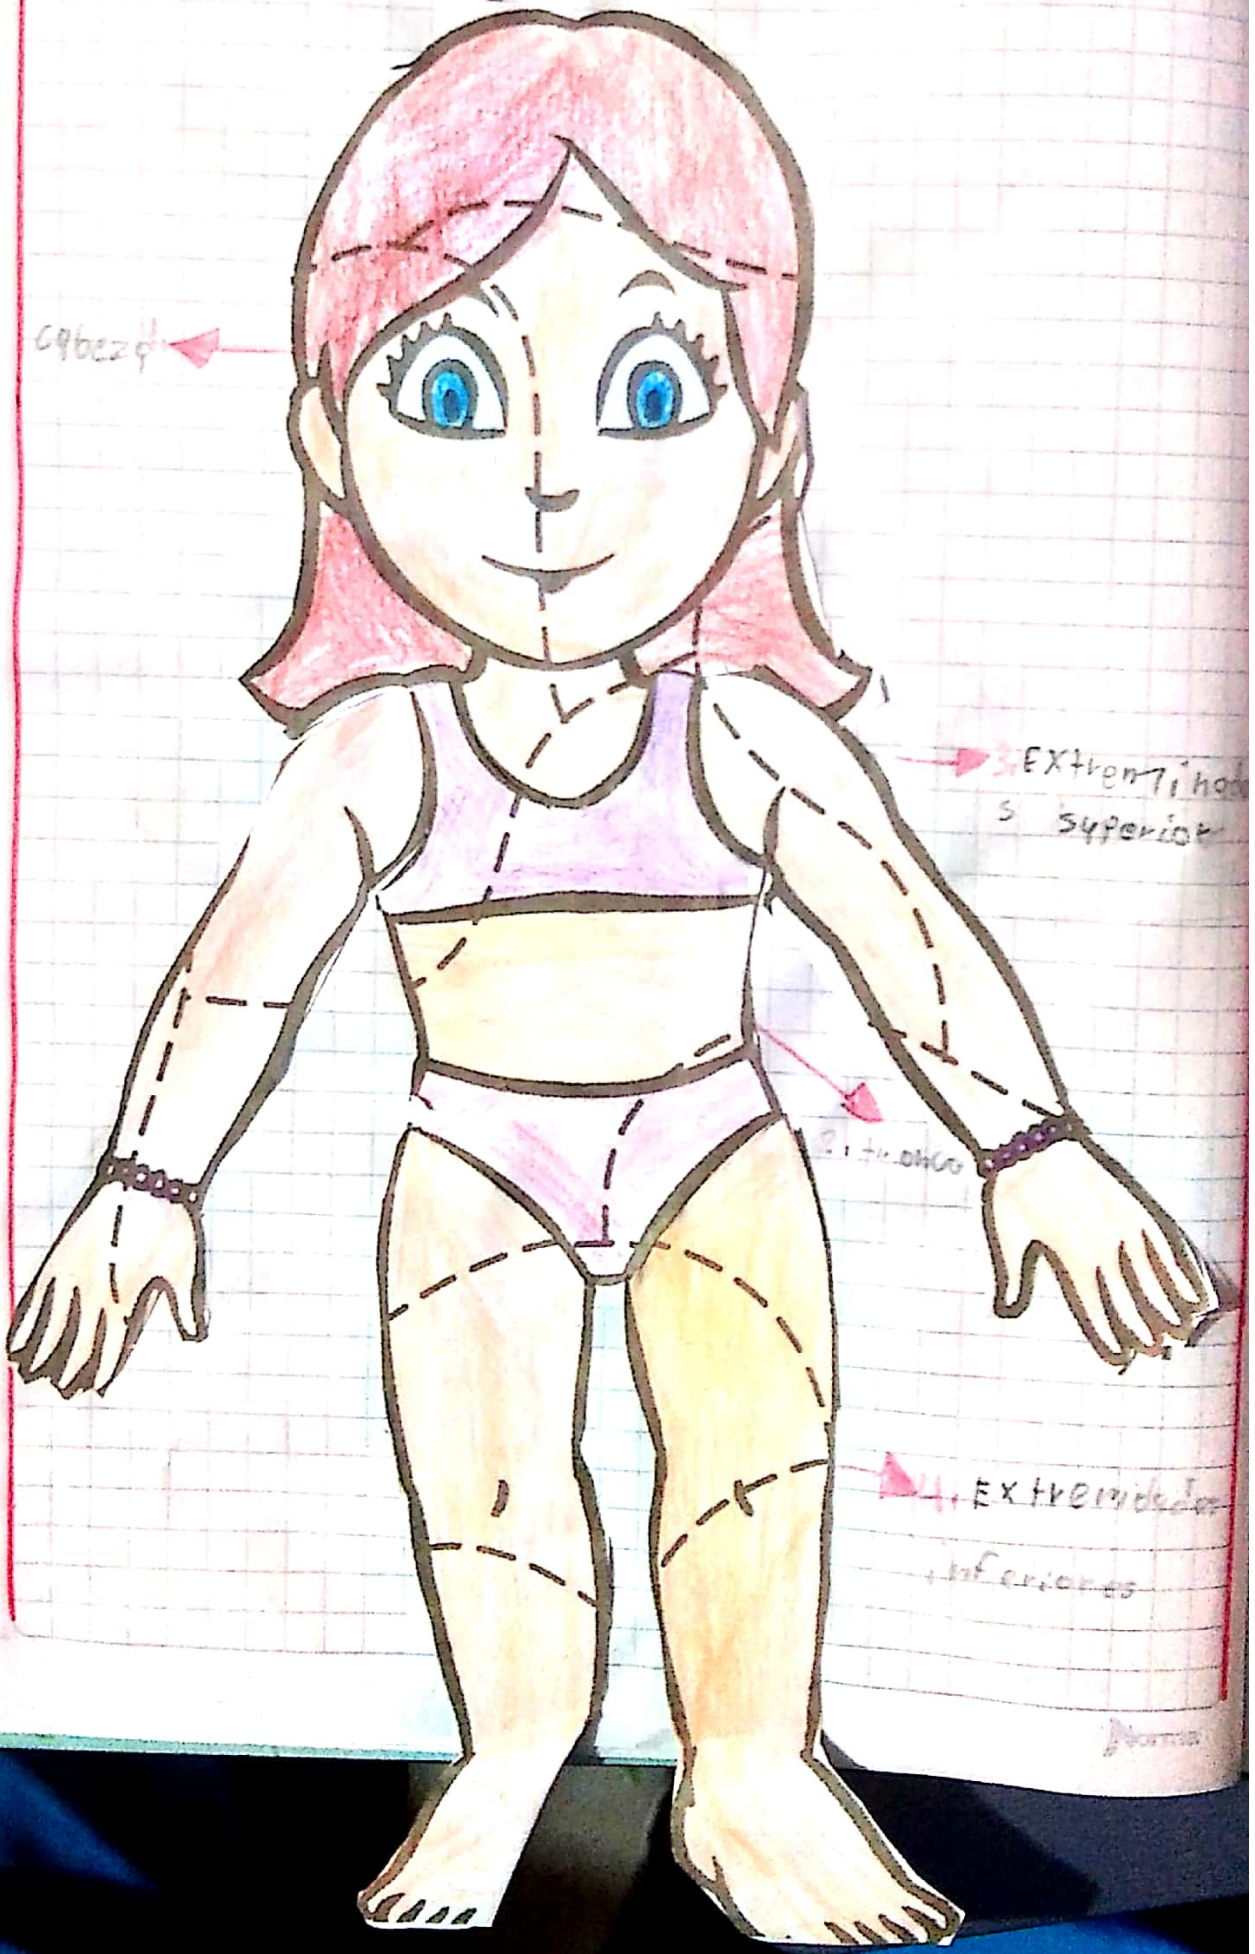 cabeza
3. Extreminada
s superior
2. tronco
4. Extremidades
inferiores
Norma